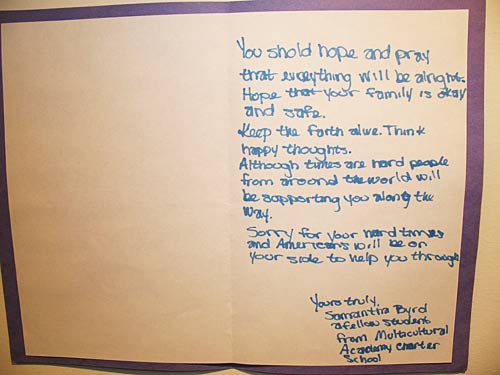 You shold hope and pray
that everything will be alright.
Hope that your family is okay
and safe.
Keep the faith alive. Think
happy thoughts.
Although times are hard people
from around the world will
be supporting you along the
way.
Sorry for your hard times
and Americans will be on
your side to help you through
Yours truly,
Samantha Byrd
a fellow student
from Multacultural
Academy Charter
School